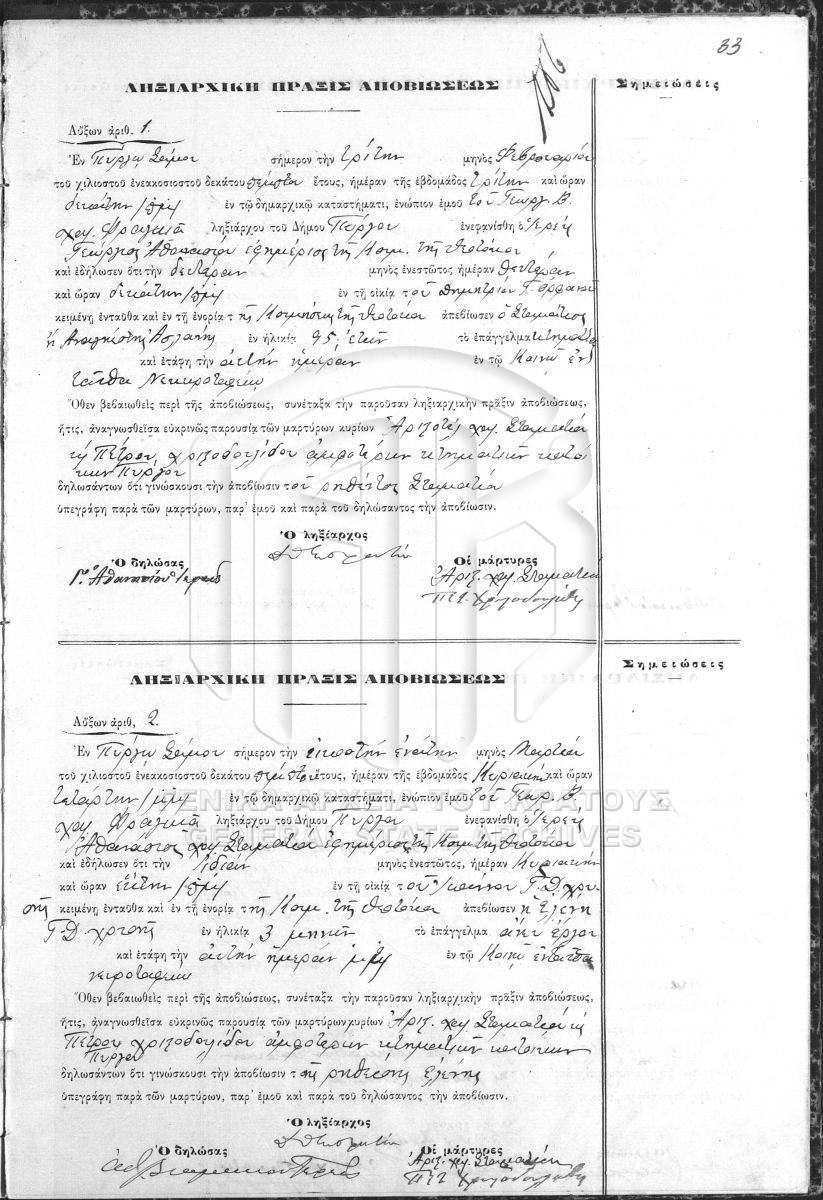 33
ΛΗΞΙΑΡΧΙΚΗ ΠΡΑΞΙΣ ΑΠΟΒΙΩΣΕΩΣ
Σημειώσεις
Αὔξων ἀριθ. 1.
Ἐν Πύργῳ Σάμου σήμερον τὴν τρίτην μηνὸς Φεβρουαρίου
τοῦ χιλιοστοῦ ἐνεακοσιοστοῦ δεκάτου πέμπτου ἔτους, ἡμέραν τῆς ἑβδομάδος τρίτην καὶ ὥραν
δεκάτην π.μ. ἐν τῷ δημαρχικῷ καταστήματι, ἐνώπιον ἐμοῦ τοῦ Γεωργ. Β.
χα. Φραγκιᾶ ληξιάρχου τοῦ Δήμου Πύργου ἐνεφανίσθη ὁ Ἱερεὺς
Γεώργιος Ἀθανασίου ἐφημέριος τῆς Κοιμ. τῆς Θεοτόκου
καὶ ἐδήλωσεν ὅτι τὴν δευτέραν μηνὸς ἐνεστῶτος ἡμέραν δευτέραν
καὶ ὥραν δεκάτην π.μ. ἐν τῇ οἰκίᾳ τοῦ Δημητρίου Γ.
κειμένῃ ἐνταῦθα καὶ ἐν τῇ ἐνορίᾳ τῆς Κοιμήσεως τῆς Θεοτόκου ἀπεβίωσεν ὁ Σταμάτιος
Ἀσλανῆς ἐν ἡλικίᾳ 95 ἐτῶν τὸ ἐπάγγελμα κτηματίας
καὶ ἐτάφη τὴν αὐτὴν ἡμέραν ἐν τῷ Κοινῷ ἐν
ταῦθα Νεκροταφείῳ
Ὅθεν βεβαιωθεὶς περὶ τῆς ἀποβιώσεως, συνέταξα τὴν παροῦσαν ληξιαρχικὴν πρᾶξιν ἀποβιώσεως,
ἥτις, ἀναγνωσθεῖσα εὐκρινῶς παρουσίᾳ τῶν μαρτύρων κυρίων Ἀριστοτ. χα. Σταματίου
Πέτρου Χριστοδουλίδου ἀμφοτέρων κτηματιῶν κατοί
κων Πύργου
δηλωσάντων ὅτι γινώσκουσι τὴν ἀποβίωσιν τοῦ ρηθέντος Σταματίου
ὑπεγράφη παρὰ τῶν μαρτύρων, παρ' ἐμοῦ καὶ παρὰ τοῦ δηλώσαντος τὴν ἀποβίωσιν.
Ὁ ληξίαρχος
Ὁ δηλώσας
Οἱ μάρτυρες
Γ. Ἀθανασίου Ἱερεὺς
Ἀριστ. χα. Σταματίου
Πέτ. Χριστοδουλίδης
ΛΗΞΙΑΡΧΙΚΗ ΠΡΑΞΙΣ ΑΠΟΒΙΩΣΕΩΣ
Σημειώσεις
Αὔξων ἀριθ. 2.
Ἐν Πύργῳ Σάμου σήμερον τὴν εἰκοστὴν ἐνάτην μηνὸς Μαρτίου
τοῦ χιλιοστοῦ ἐνεακοσιοστοῦ δεκάτου πέμπτου ἔτους, ἡμέραν τῆς ἑβδομάδος Κυριακὴν καὶ ὥραν
τετάρτην μ.μ. ἐν τῷ δημαρχικῷ καταστήματι, ἐνώπιον ἐμοῦ τοῦ Γεωρ. Β.
χα. Φραγκιᾶ ληξιάρχου τοῦ Δήμου Πύργου ἐνεφανίσθη ὁ Ἱερεὺς
Ἀθανάσιος χα. Σταματίου ἐφημέριος τῆς Κοιμ. τῆς Θεοτόκου
καὶ ἐδήλωσεν ὅτι τὴν ἰδίαν μηνὸς ἐνεστῶτος, ἡμέραν Κυριακὴν
καὶ ὥραν ἕκτην π.μ. ἐν τῇ οἰκίᾳ τοῦ Ἰωάννου Γ. Δ.
κειμένῃ ἐνταῦθα καὶ ἐν τῇ ἐνορίᾳ τῆς Κοιμ. τῆς Θεοτόκου ἀπεβίωσεν ἡ Ἑλένη
Γ. Δ. ἐν ἡλικίᾳ 3 μηνῶν τὸ ἐπάγγελμα ἄνευ ἔργου
καὶ ἐτάφη τὴν αὐτὴν ἡμέραν μ.μ. ἐν τῷ Κοινῷ ἐνταῦθα
νεκροταφείῳ
Ὅθεν βεβαιωθεὶς περὶ τῆς ἀποβιώσεως, συνέταξα τὴν παροῦσαν ληξιαρχικὴν πρᾶξιν ἀποβιώσεως,
ἥτις, ἀναγνωσθεῖσα εὐκρινῶς παρουσίᾳ τῶν μαρτύρων κυρίων Ἀριστ. χα. Σταματίου
Πέτρου Χριστοδουλίδου ἀμφοτέρων κτηματιῶν κατοίκων
Πύργου
δηλωσάντων ὅτι γινώσκουσι τὴν ἀποβίωσιν τῆς ρηθείσης Ἑλένης
ὑπεγράφη παρὰ τῶν μαρτύρων, παρ' ἐμοῦ καὶ παρὰ τοῦ δηλώσαντος τὴν ἀποβίωσιν.
Ὁ ληξίαρχος
Ὁ δηλώσας
Οἱ μάρτυρες
Ἀριστ. χα. Σταματίου
Πέτ. Χριστοδουλίδης
ΓΕΝΙΚΑ ΑΡΧΕΙΑ ΤΟΥ ΚΡΑΤΟΥΣ
GENERAL STATE ARCHIVES